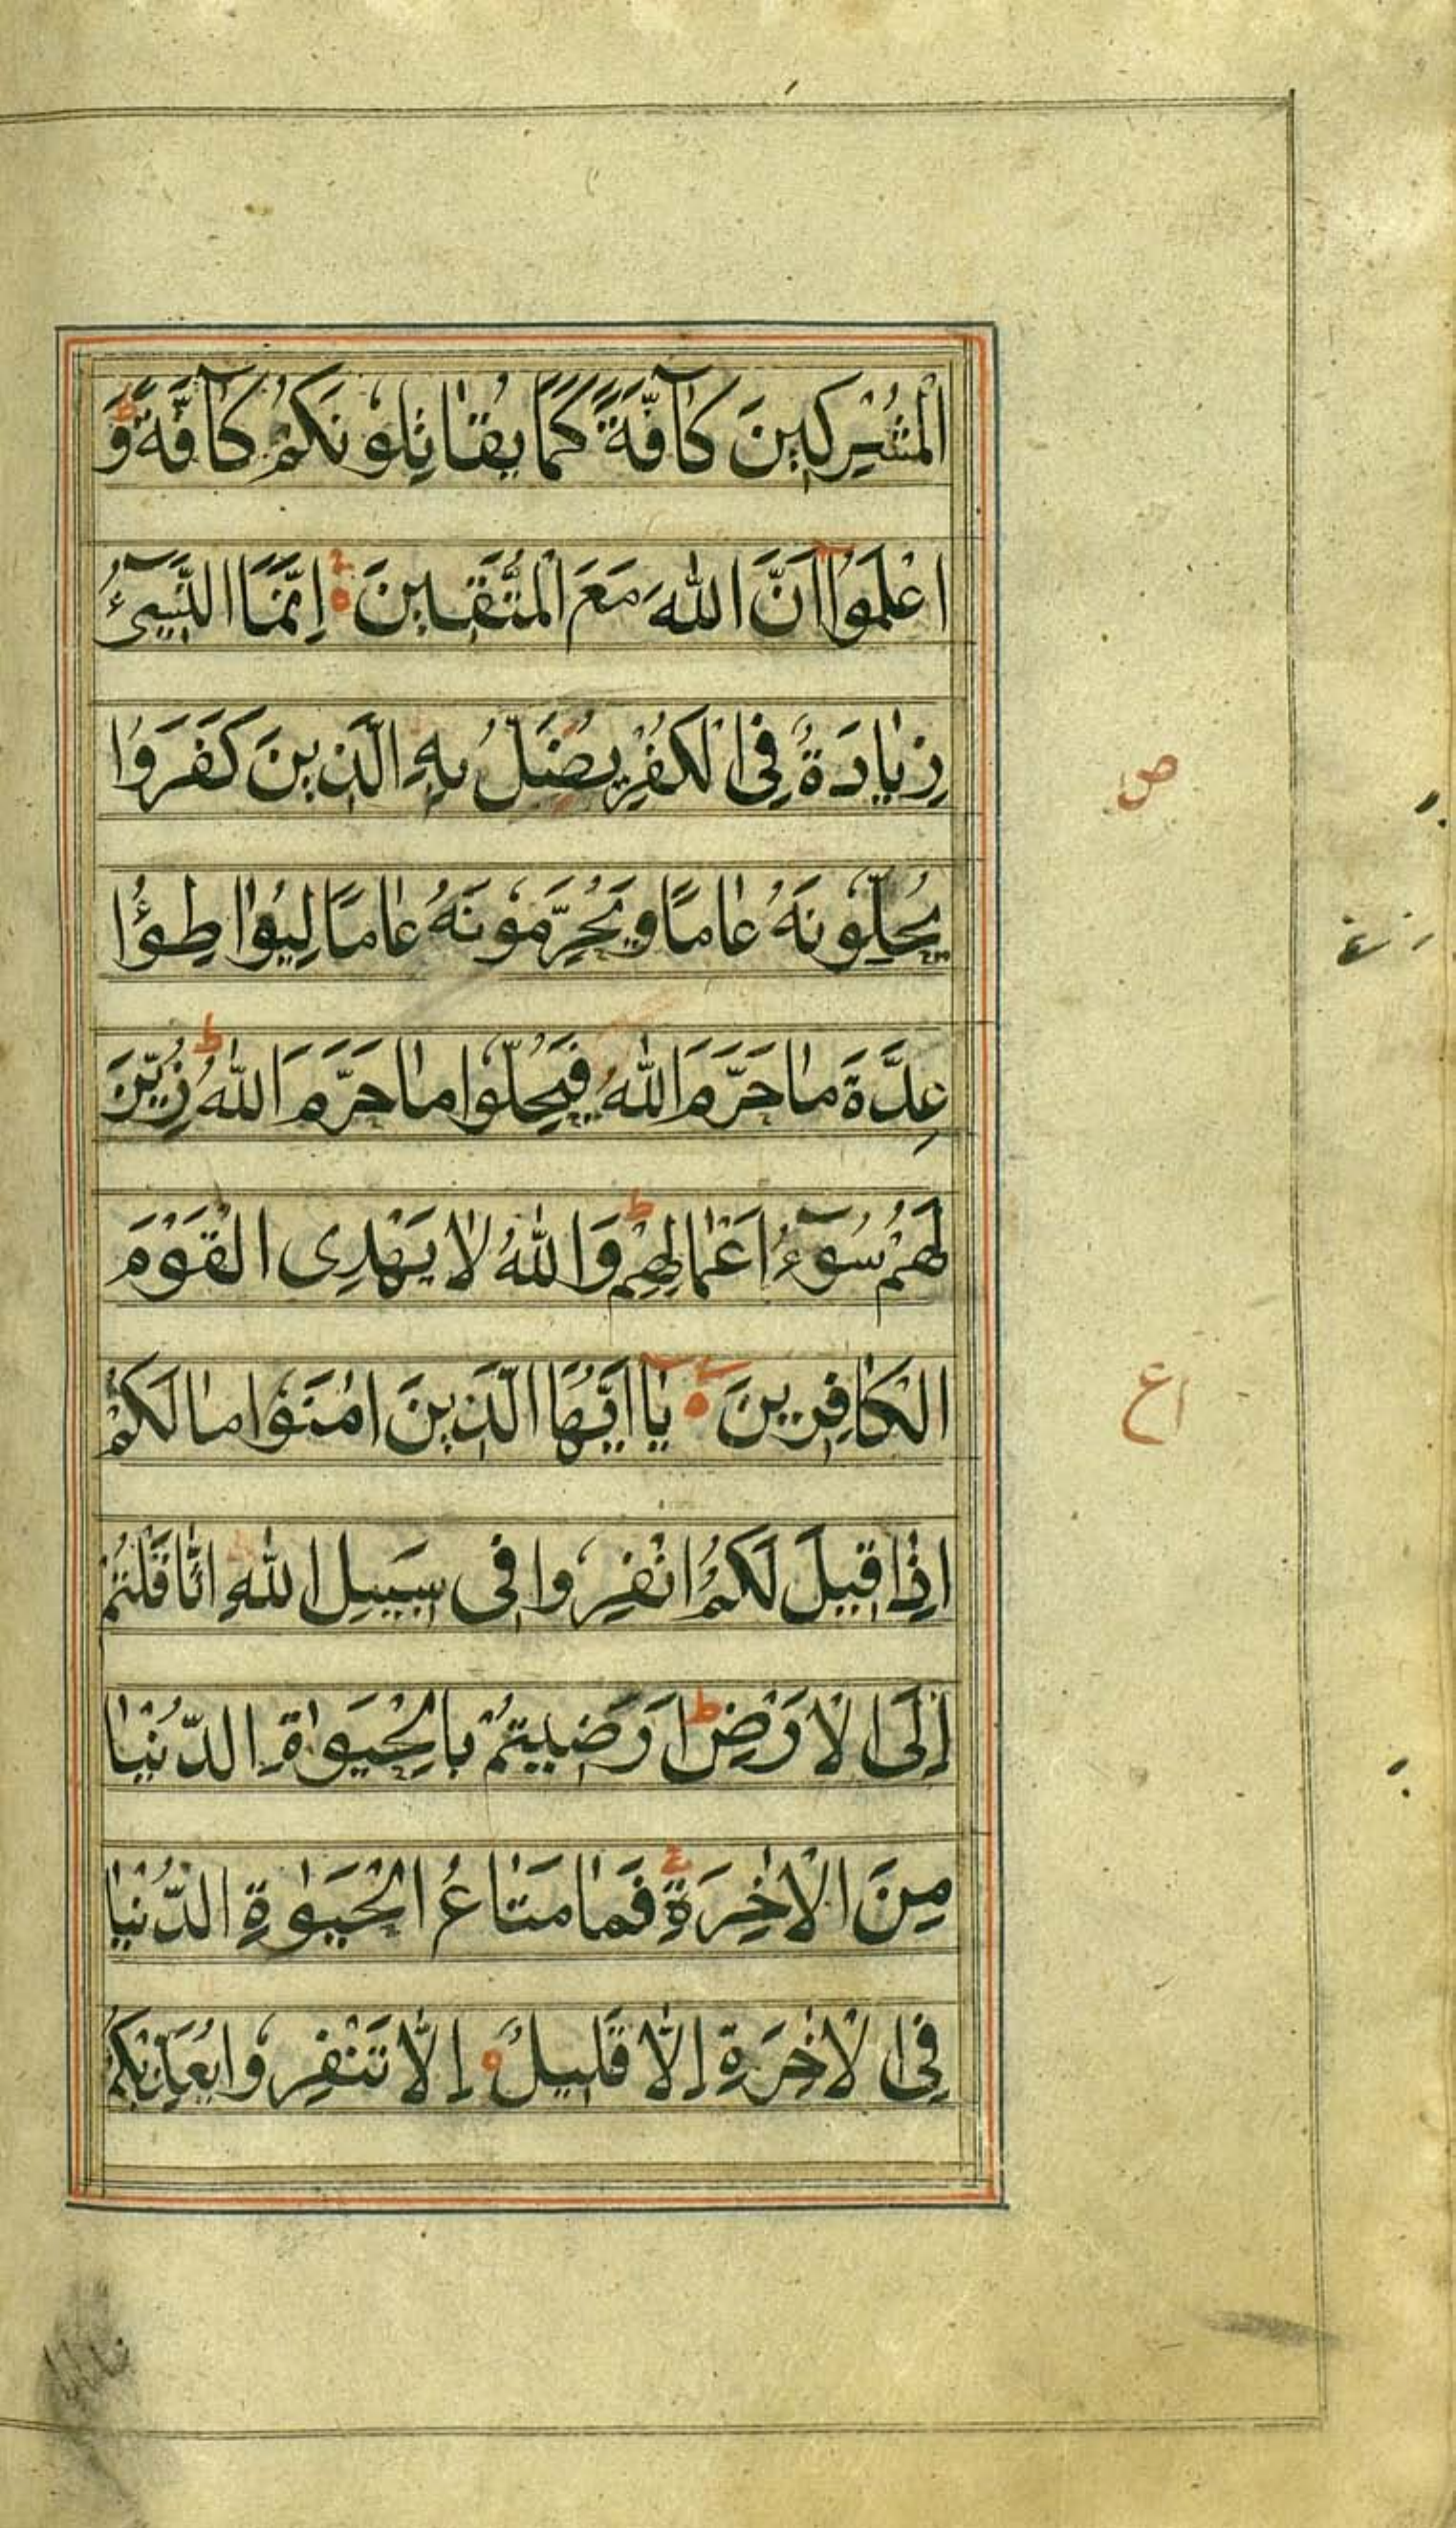 الْمُشْرِكِينَ كَآفَّةً كَمَا يُقَاتِلُونَكُمْ كَآفَّةً ط وَ
اعْلَمُوا اَنَّ اللّٰهَ مَعَ الْمُتَّقِينَ ه اِنَّمَا النَّسِيٓءُ
زِيَادَةٌ فِى الْكُفْرِ يُضَلُّ بِهِ الَّذِينَ كَفَرُوا
ص
يُحِلُّونَهُ عَامًا وَيُحَرِّمُونَهُ عَامًا لِيُوَاطِؤُا
عِدَّةَ مَا حَرَّمَ اللّٰهُ فَيُحِلُّوا مَا حَرَّمَ اللّٰهُ ط زُيِّنَ
لَهُمْ سُوٓءُ اَعْمَالِهِمْ ط وَاللّٰهُ لَا يَهْدِى الْقَوْمَ
الْكَافِرِينَ ه يَا اَيُّهَا الَّذِينَ اٰمَنُوا مَا لَكُمْ
اع
اِذَا قِيلَ لَكُمُ انْفِرُوا فِى سَبِيلِ اللّٰهِ اثَّاقَلْتُمْ
اِلَى الْاَرْضِ ط اَرَضِيتُمْ بِالْحَيٰوةِ الدُّنْيَا
مِنَ الْاٰخِرَةِ فَمَا مَتَاعُ الْحَيٰوةِ الدُّنْيَا
فِى الْاٰخِرَةِ اِلَّا قَلِيلٌ ه اِلَّا تَنْفِرُوا يُعَذِّبْكُمْ